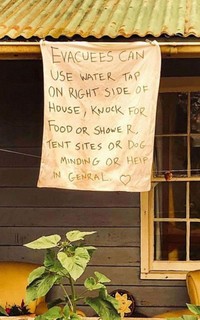 EVACUEES CAN
USE WATER TAP
ON RIGHT SIDE OF
HOUSE, KNOCK FOR
FOOD OR SHOWER,
TENT SITES OR DOG
MINDING OR HELP
IN GENRAL ♡